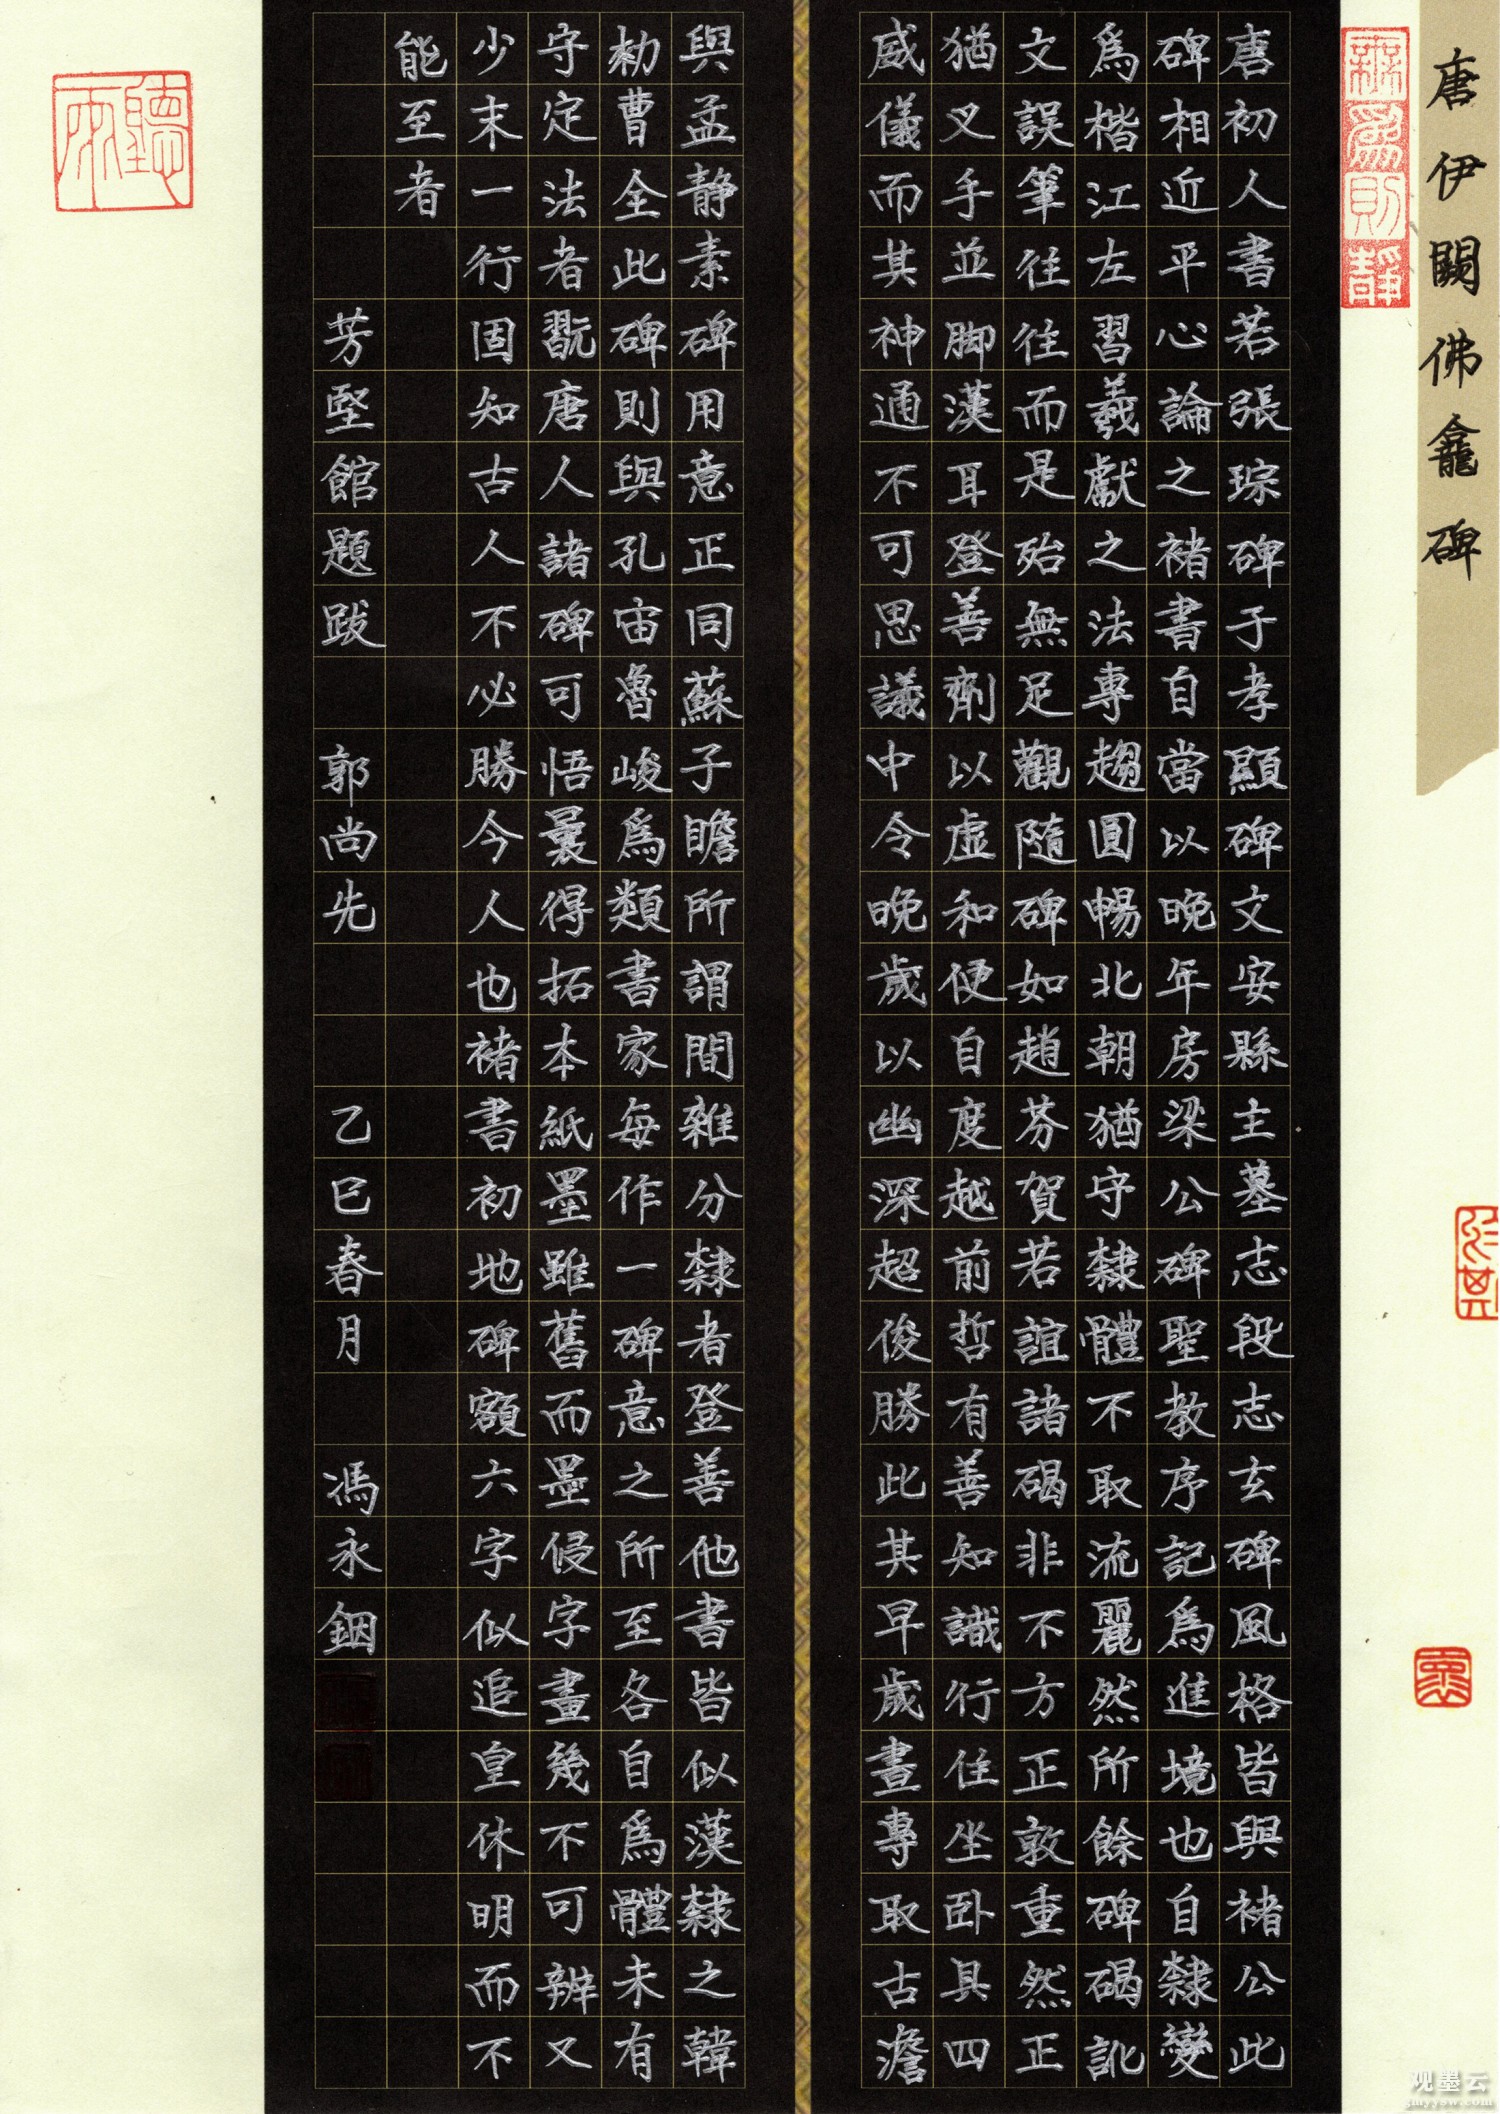 唐伊闕佛龕碑
無爲則靜
唐初人書若張琮碑于孝顯碑文安縣主墓志段志玄碑風格皆與褚公此
碑相近平心論之褚書自當以晚年房梁公碑聖教序記爲進境也自隸變
爲楷江左習羲獻之法專趨圓暢北朝猶守隸體不取流麗然所餘碑碣訛
文誤筆往往而是殆無足觀隨碑如趙芬賀若誼諸碣非不方正敦重然正
猶叉手並脚漢耳登善劑以虛和便自度越前哲有善知識行住坐卧具四
威儀而其神通不可思議中令晚歲以幽深超俊勝此其早歲晝專取古澹
與孟靜素碑用意正同蘇子瞻所謂間雜分隸者登善他書皆似漢隸之韓
勑曹全此碑則與孔宙魯峻爲類書家每作一碑意之所至各自爲體未有
守定法者翫唐人諸碑可悟曩得拓本紙墨雖舊而墨侵字畫幾不可辨又
少末一行固知古人不必勝今人也褚書初地碑額六字似追皇休明而不
能至者
芳堅館題跋 郭尚先 乙巳春月 馮永錮
聽雨
观墨云
gmyysw.com